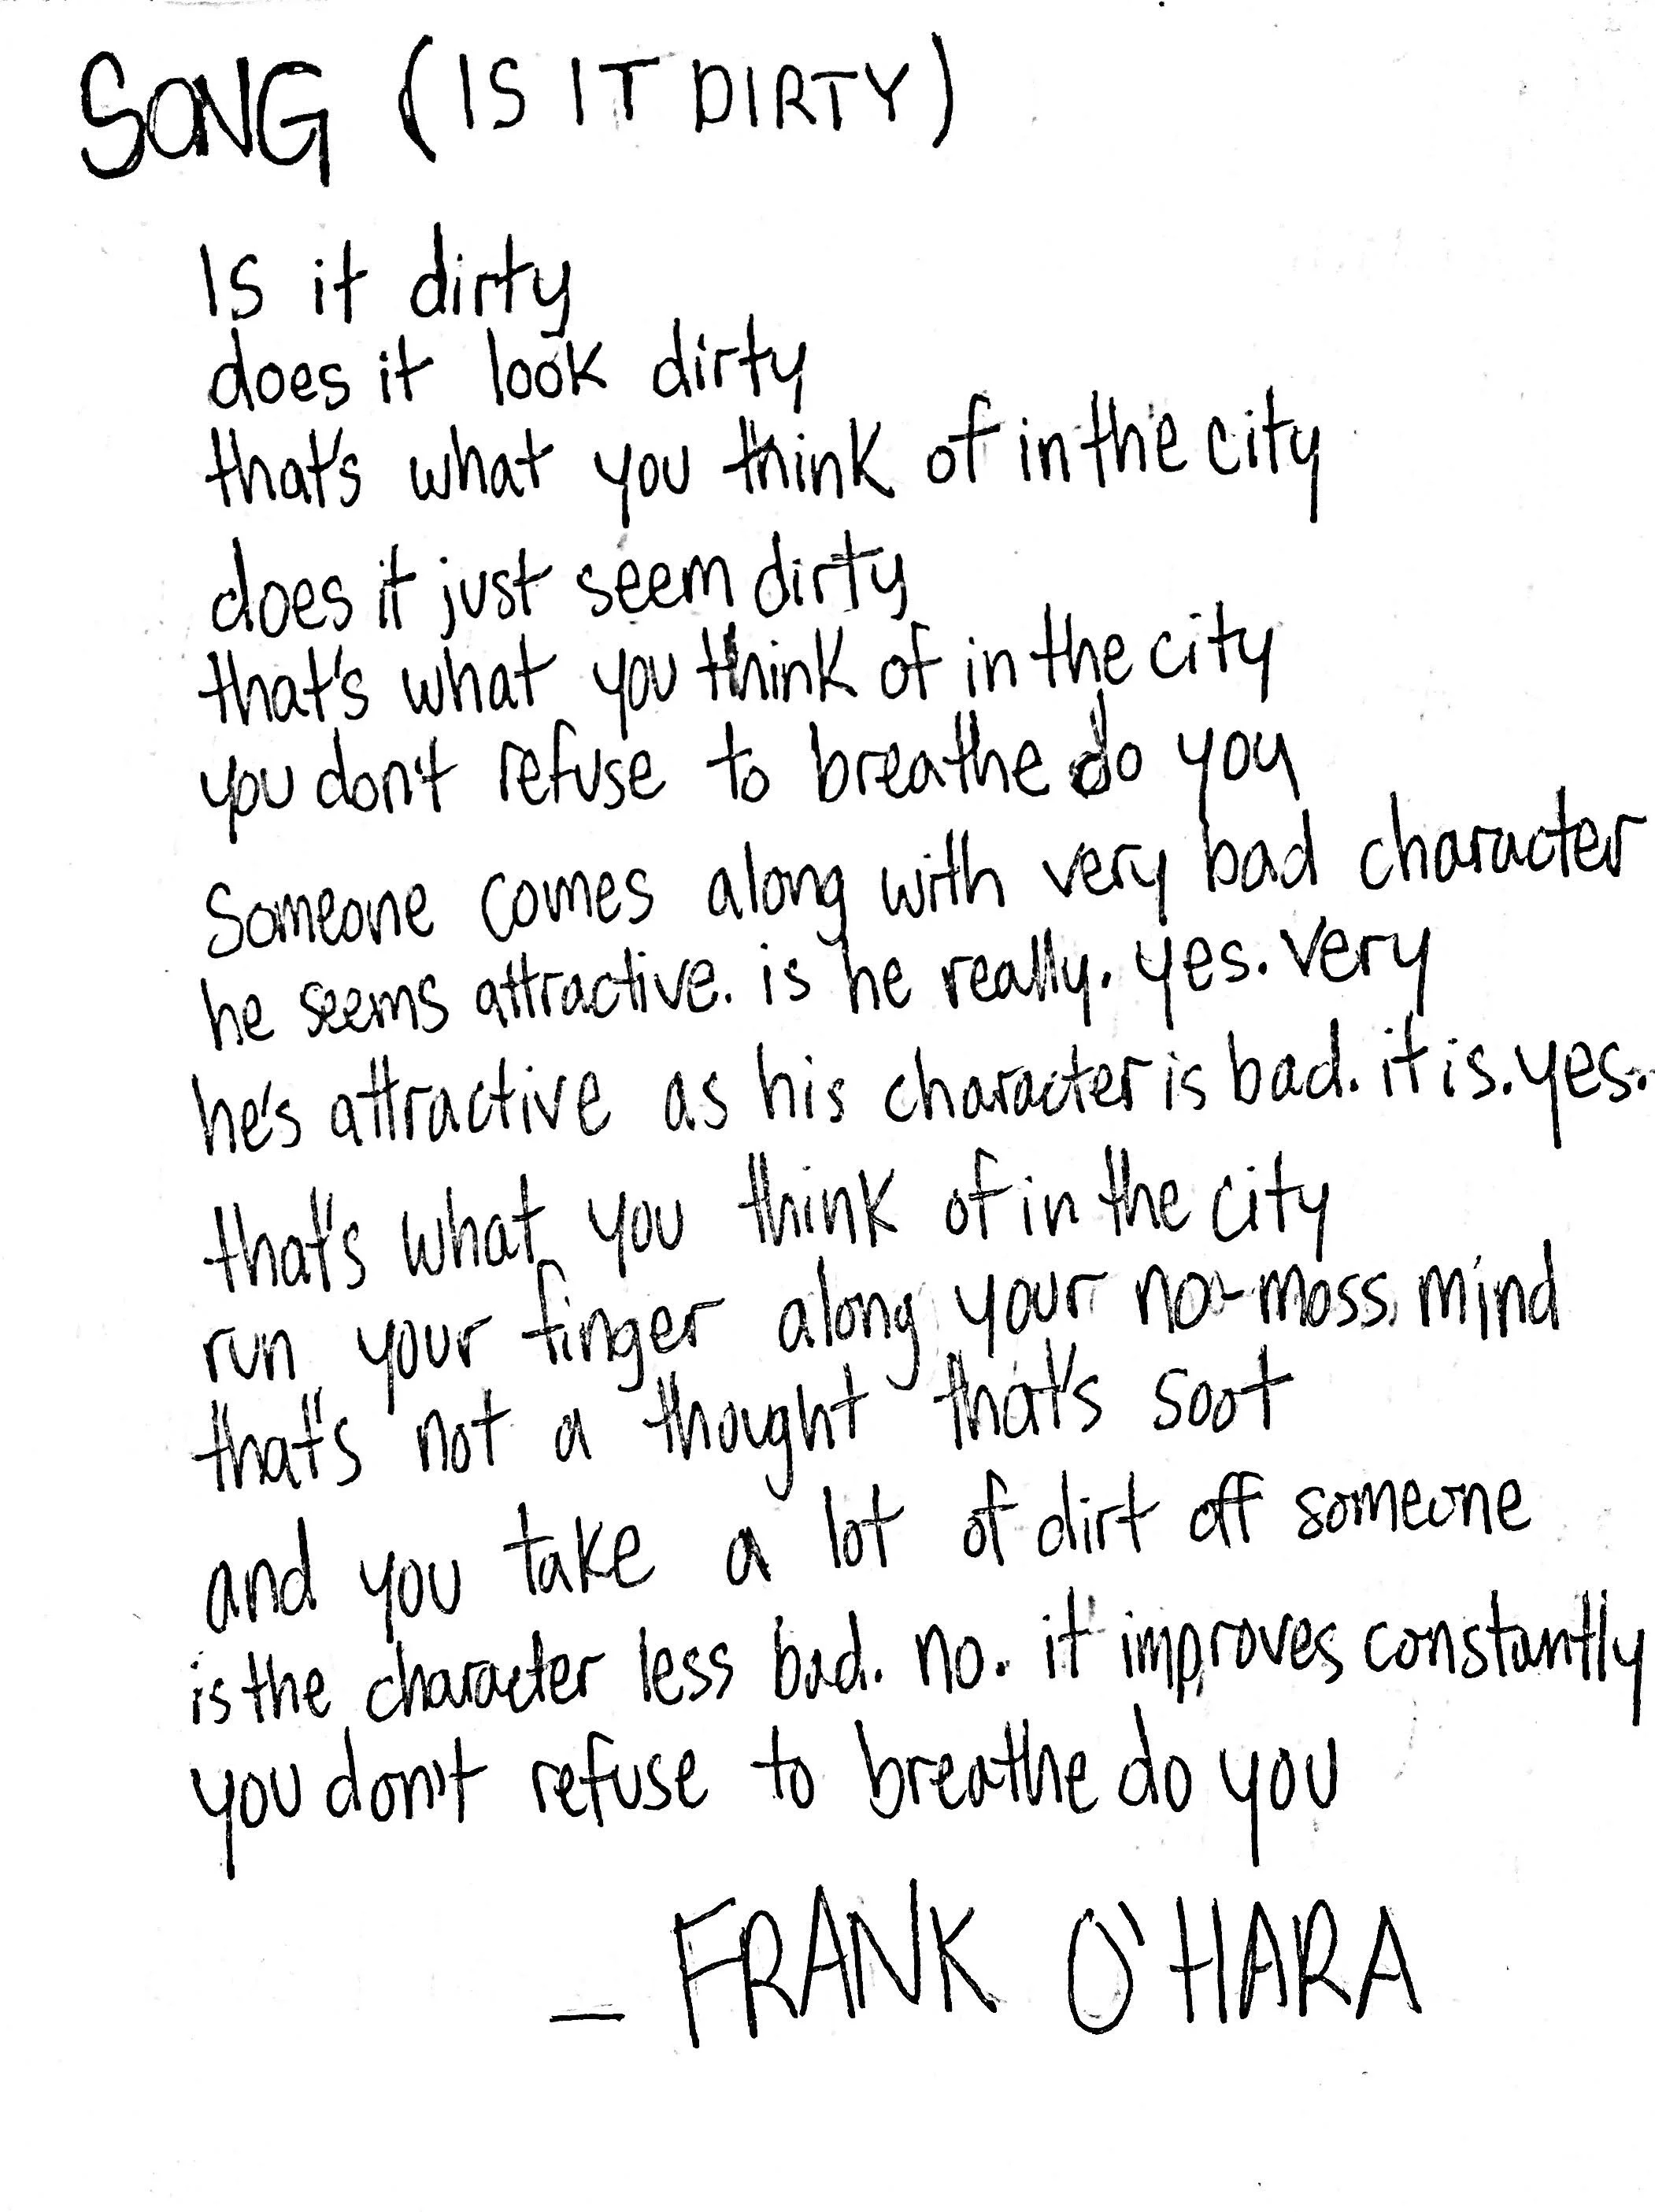 SONG (IS IT DIRTY)
Is it dirty
does it look dirty
that's what you think of in the city
does it just seem dirty
that's what you think of in the city
you don't refuse to breathe do you
Someone comes along with very bad character
he seems attractive. is he really. yes. very
he's attractive as his character is bad. it is. yes.
that's what you think of in the city
run your finger along your no-moss mind
that's not a thought that's soot
and you take a lot of dirt off someone
is the character less bad. no. it improves constantly
you don't refuse to breathe do you
— FRANK O'HARA